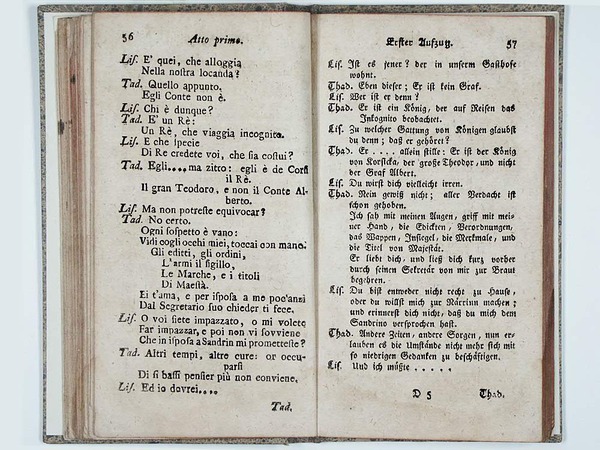 56 Atto primo.
Lis. E' quei, che alloggia
Nella nostra locanda?
Tad. Quello appunto.
Egli Conte non è.
Lis. Chi è dunque?
Tad. E' un Rè:
Un Rè, che viaggia incognito.
Lis. E che specie
Di Re credete voi, che sia costui?
Tad. Egli.... ma zitto: egli è de Corsi
il Rè.
Il gran Teodoro, e non il Conte Al-
berto.
Lis. Ma non potreste equivocar?
Tad. No certo.
Ogni sospetto è vano:
Vidi cogli occhi miei, toccai con mano.
Gli editti, gli ordini,
L'armi il sigillo,
Le Marche, e i titoli
Di Maestà.
Ei t'ama, e per isposa a me poc'anzi
Dal Segretario suo chieder ti fece.
Lis. O voi siete impazzato, o mi volete
Far impazzar, e poi non vi sovviene
Che in isposa a Sandrin mi prometteste?
Tad. Altri tempi, altre cure: or occu-
parsi
Di sì bassi pensier più non conviene.
Lis. Ed io dovrei....
Tad.
Erster Aufzug. 57
Lis. Ist es jener? der in unserm Gasthofe
wohnt.
Thad. Eben dieser; Er ist kein Graf.
Lis. Wer ist er denn?
Thad. Er ist ein König, der auf Reisen das
Inkognito beobachtet.
Lis. Zu welcher Gattung von Königen glaubst
du denn; daß er gehöret?
Thad. Er .... allein stille: Er ist der König
von Korsicka, der große Theodor, und nicht
der Graf Albert.
Lis. Du wirst dich vielleicht irren.
Thad. Nein gewiß nicht; aller Verdacht ist
schon gehoben.
Ich sah mit meinen Augen, griff mit mei-
ner Hand, die Edickten, Verordnungen,
das Wappen, Insiegel, die Merkmale, und
die Titel von Majestät.
Er liebt dich, und ließ dich kurz vorher
durch seinen Sekretär von mir zur Braut
begehren.
Lis. Du bist entweder nicht recht zu Hause,
oder du willst mich zur Närrinn machen;
und erinnerst dich nicht, daß du mich dem
Sandrino versprochen hast.
Thad. Andere Zeiten, andere Sorgen, nun er-
lauben es die Umstände nicht mehr sich mit
so niedrigen Gedanken zu beschäftigen.
Lis. Und ich müßte .....
D 5 Thad.